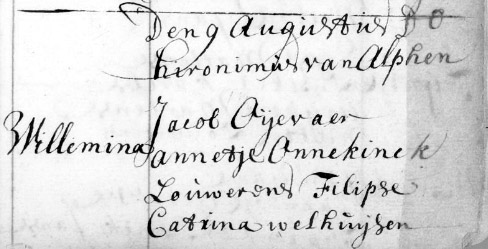 Den 9 Augustus D O
hironimus van Alphen
Jacob Oijevaer
Willemina
annetje Onnekinck
Louwerens Filipse
Catrina welhuijsen